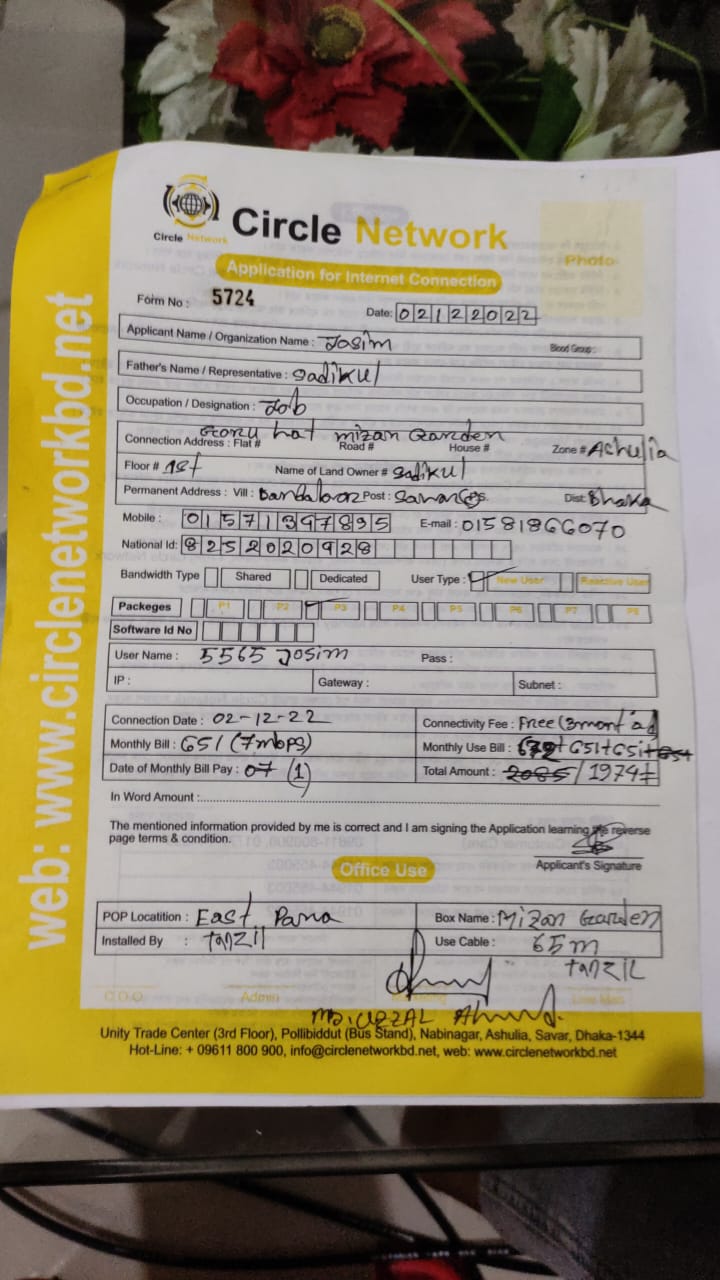 web: www.circlenetworkbd.net
Circle Network
Circle Network
Photo
Application for Internet Connection
Form No : 5724
Date: 02122022
Applicant Name / Organization Name : Josim Blood Group :
Father's Name / Representative : Sadikul
Occupation / Designation : Job
Goru hat mizan Garden
Connection Address : Flat # Road # House # Zone # Achulia
Floor # 1st Name of Land Owner # Sadikul
Permanent Address : Vill : Post : Dist: Dhaka
Mobile : 01571397895 E-mail : 01581866070
National Id: 8252020928
Bandwidth Type Shared Dedicated User Type : New User Reactive User
Packeges P1 P2 P3 P4 P5 P6 P7 P8
Software Id No
User Name : 5565 Josim Pass :
IP : Gateway : Subnet :
Connection Date : 02-12-22 Connectivity Fee : Free (3mont ad
Monthly Bill : 651 (7mbps) Monthly Use Bill : +651+651+
Date of Monthly Bill Pay : 07 (1) Total Amount : 2085/1974
In Word Amount :
The mentioned information provided by me is correct and I am signing the Application learning the reverse
page terms & condition.
Applicant's Signature
Office Use
POP Locatition : East Para Box Name : Mizan Garden
Installed By : Tanzil Use Cable : 65m
TANZIL
C.O.O. Admin Marketing Line Man
Ahmed.
Unity Trade Center (3rd Floor), Pollibiddut (Bus Stand), Nabinagar, Ashulia, Savar, Dhaka-1344
Hot-Line: + 09611 800 900, info@circlenetworkbd.net, web: www.circlenetworkbd.net